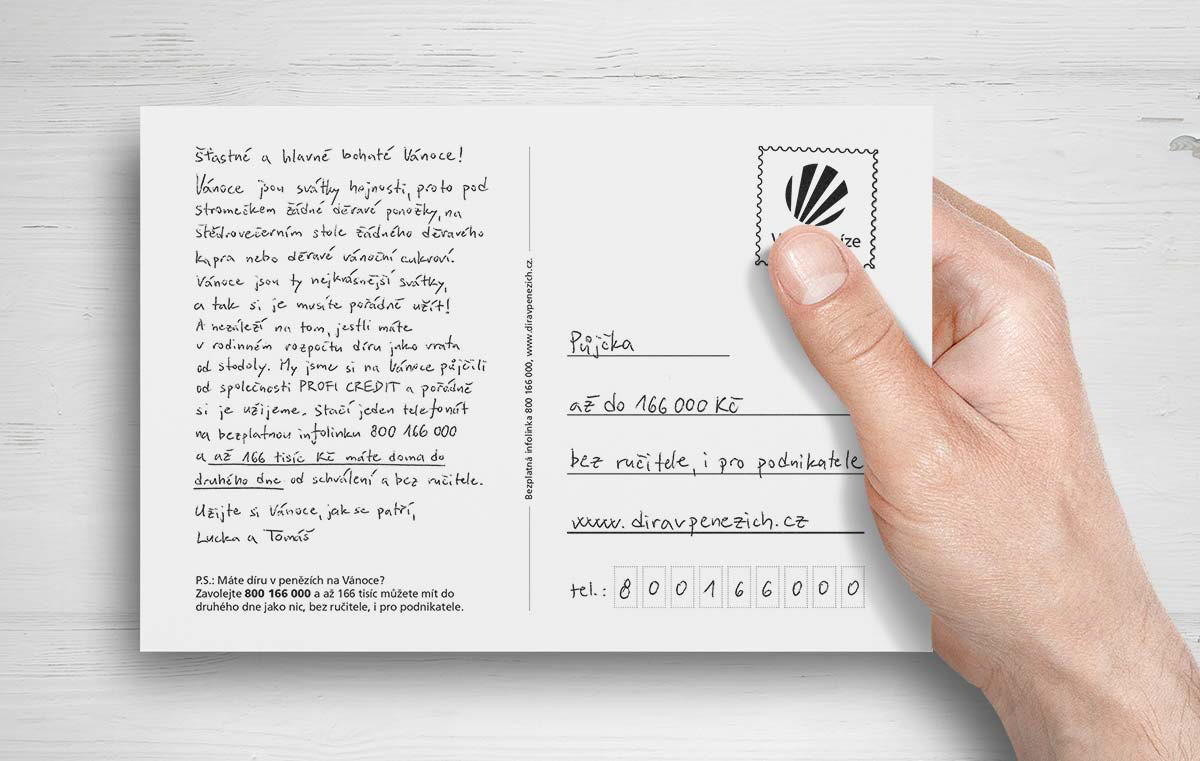 Šťastné a hlavně bohaté Vánoce!
Vánoce jsou svátky hojnosti, proto pod
stromečkem žádné děravé ponožky, na
štědrovečerním stole žádného děravého
kapra nebo děravé vánoční cukroví.
Vánoce jsou ty nejkrásnější svátky,
a tak si je musíte pořádně užít!
A nezáleží na tom, jestli máte
v rodinném rozpočtu díru jako vrata
od stodoly. My jsme si na Vánoce půjčili
od společnosti PROFI CREDIT a pořádně
si je užijeme. Stačí jeden telefonát
na bezplatnou infolinku 800 166 000
a až 166 tisíc Kč máte doma do
druhého dne od schválení a bez ručitele.
Užijte si Vánoce, jak se patří,
Lucka a Tomáš
P.S.: Máte díru v penězích na Vánoce?
Zavolejte 800 166 000 a až 166 tisíc můžete mít do
druhého dne jako nic, bez ručitele, i pro podnikatele.
Bezplatná infolinka 800 166 000, www.diravpenezich.cz.
Půjčka
až do 166 000 Kč
bez ručitele, i pro podnikatele
www.diravpenezich.cz
tel.: 800166000